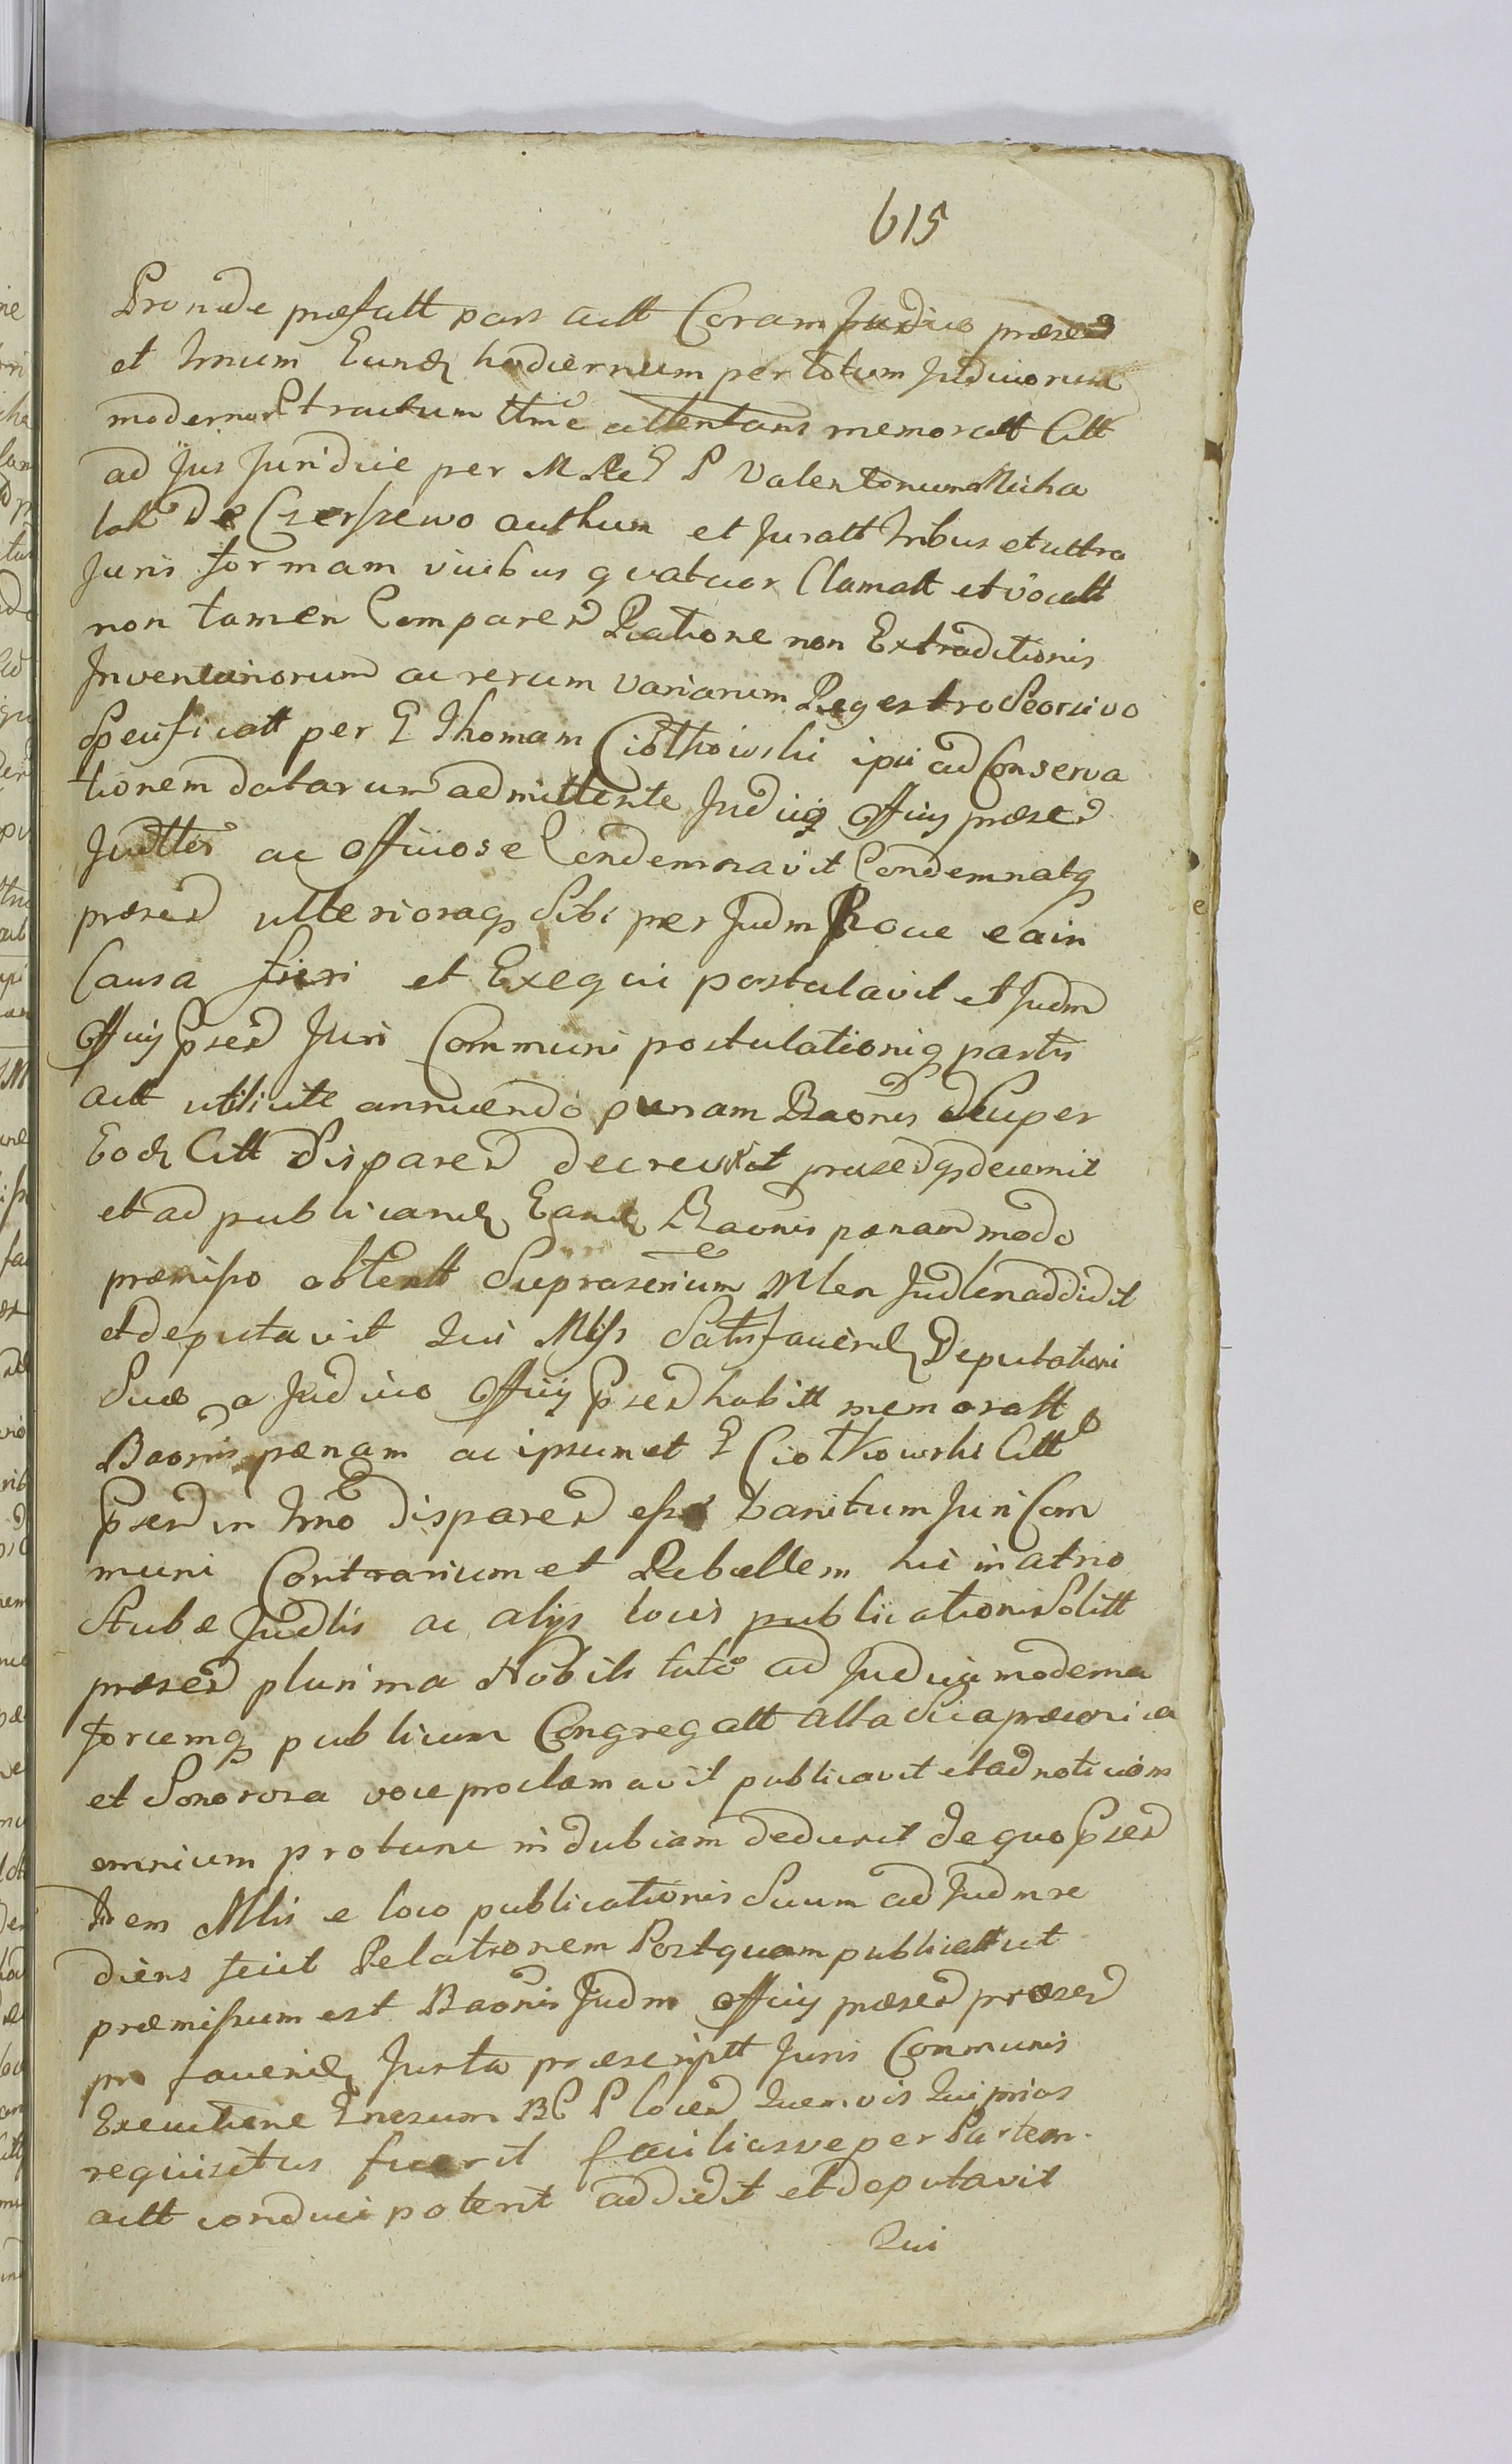 615
Proinde præfatt pars actt Coram Judicio præsen
et Trnum Eundẽ hodiernum per totum Judiciorum
modernor tractum ttme attentans memoratt Citt
ad Jus Juridice per M P Valentinum Micha
lak de Czerszewo authum et Juratt tribus et ultra
Juris formam vicibus quatuor Clamatt et vocatt
non tamen Comparen Ratione non Extraditionis
Inventariorum ac rerum variarum Regestro Seorsivo
Specificatt per G Thomam Ciotkowski ipsi ad Conserva
tionem datarum admittente Judicio Officij præsen
Judtter ac officiose Condemnavit Condemnatq
præsen ulterioraq Sibi per Judm hocce ea in
Causa fieri et Exequi postulavit et Judm
Officij Psen Juri Communi postulationiq partis
actt utilicite annuendo pœnam Baonis Super
Eodẽ Citt disparen decrevit præsenq decernit
et ad publicandẽ Eandẽ Baonis pœnam modo
præmisso obtentt Suprascrium Mlen Judlen addidit
et deputavit Qui Mlis Satisfaciendẽ Deputationi
Suæ a Judicio Officij Psen habitt memoratt
Baonis pœnam ac ipsummet G Ciotkowski Citt
Psen in Trno disparen esse banitum Juri Com
muni Contrarium et Rebellem hic in atrio
Stubæ Judlis ac alijs locis publicationis Solitt
præsen plurima Nobilitate ad Judicia moderna
forumq publicum Congregatt alta præconica
et Sonorosa voce proclamavit publicavit et ad noticiam
omnium protunc indubiam deduxit de quo Psen
Idem Mlis e loco publicationis Suum ad Judm re
diens fecit Relationem Postquam publicatt ut
præmissum est Baonis Judm Officij præsen præsen
pro faciendẽ Juxta præscriptt Juris Communis
Executione Gnosum BC P locen quemvis Qui prius
requisitus fuerit faciliusve per Partem
actt conduci poterit addidit et deputavit
Qui